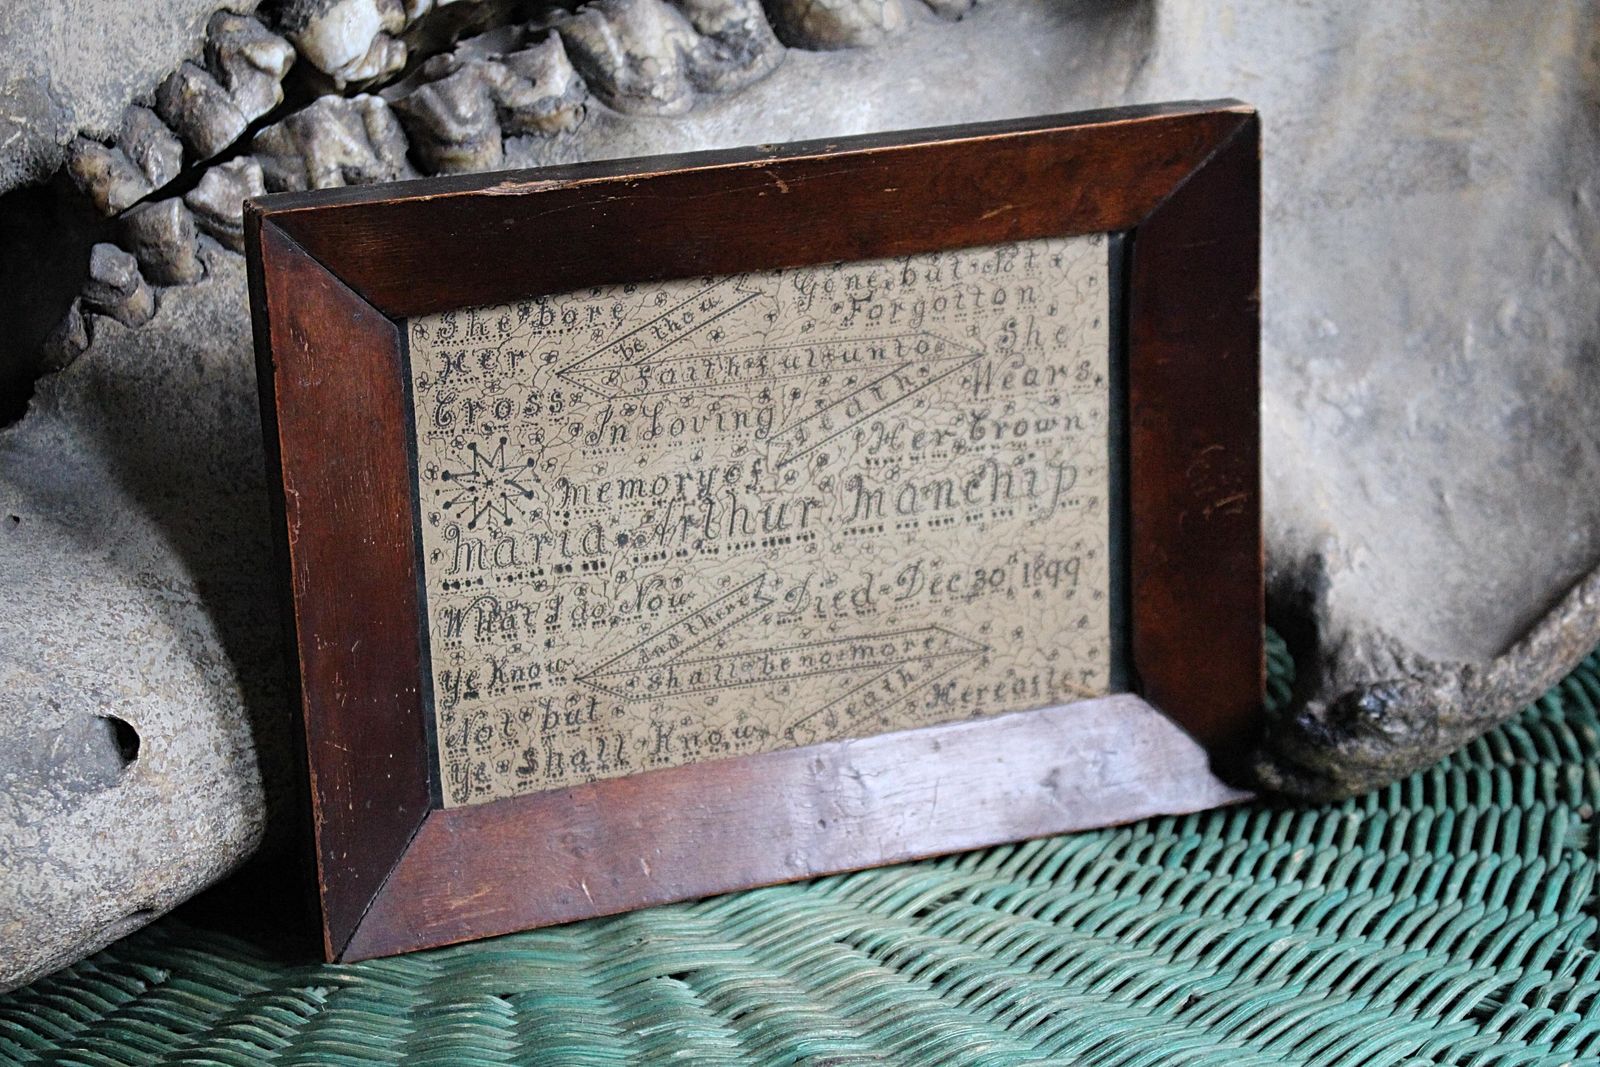 She bore
Her
Cross
be thou
faithful unto
death
Gone but Not
Forgotton
She
Wears
Her Crown
In Loving
Memory of
Maria Arthur Manchip
Died Dec 30th 1899
What I do Now
Ye Know
Not but
Ye Shall Know
Hereafter
And there
shall be no more
death